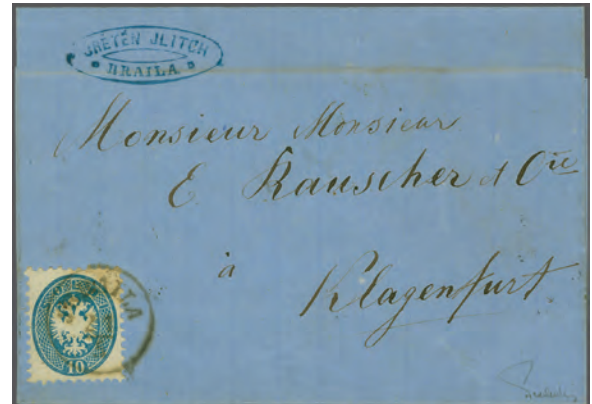 SRETEN JLITCH
BRAILA
Monsieur Monsieur
E Rauscher & Cie
à
Klagenfurt
10